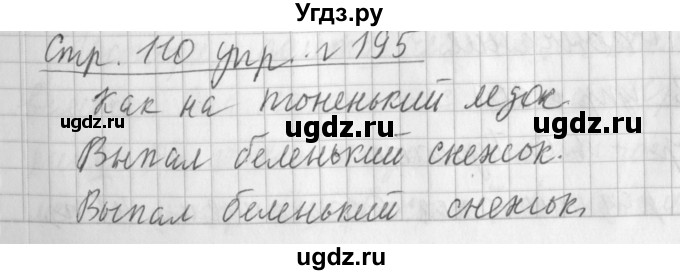 Угдз.ру
Стр. 110 упр. г 195
Как на тоненький ледок
ugdz.ru ugdz.ru ugdz.ru
Выпал беленький снежок.
Выпал беленький снежок,
ugdz.ru ugdz.ru